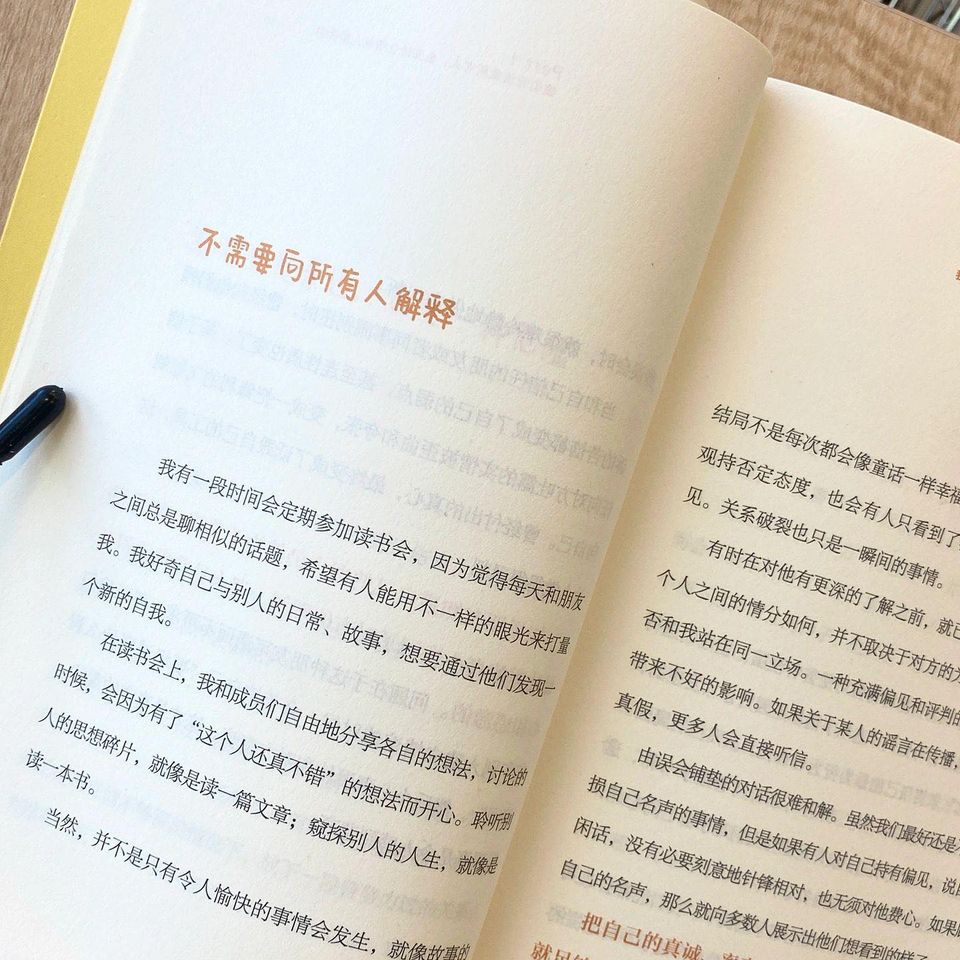 不需要向所有人解释
我有一段时间会定期参加读书会，因为觉得每天和朋友
之间总是聊相似的话题，希望有人能用不一样的眼光来打量
我。我好奇自己与别人的日常、故事，想要通过他们发现一
个新的自我。
在读书会上，我和成员们自由地分享各自的想法，讨论的
时候，会因为有了“这个人还真不错”的想法而开心。聆听别
人的思想碎片，就像是读一篇文章；窥探别人的人生，就像是
读一本书。
当然，并不是只有令人愉快的事情会发生，就像故事的
结局不是每次都会像童话一样幸福
观持否定态度，也会有人只看到了
见。关系破裂也只是一瞬间的事情。
有时在对他有更深的了解之前，就已
个人之间的情分如何，并不取决于对方的
否和我站在同一立场。一种充满偏见和评判的
带来不好的影响。如果关于某人的谣言在传播，
真假，更多人会直接听信。
由误会铺垫的对话很难和解。虽然我们最好还是
损自己名声的事情，但是如果有人对自己持有偏见，说
闲话，没有必要刻意地针锋相对，也无须对他费心。如果
自己的名声，那么就向多数人展示出他们想看到的样
把自己的真诚、